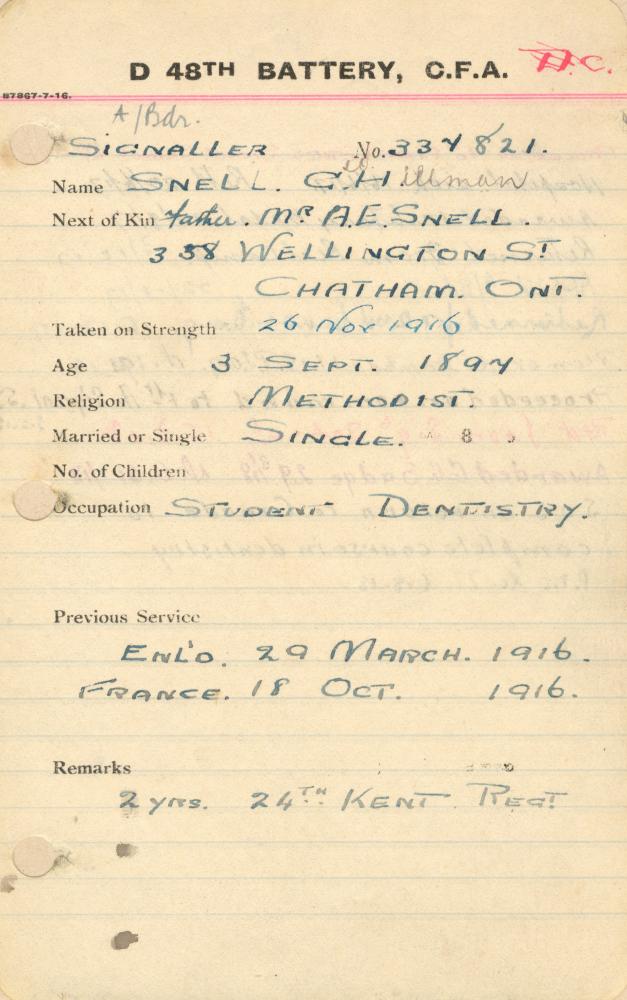 D 48TH BATTERY, C.F.A. D.C.
87867-7-16.
A/Bdr.
SIGNALLER No. 334821.
Name SNELL. C.H.
Next of Kin father. MR A.E. SNELL.
338 WELLINGTON ST
CHATHAM. ONT.
Taken on Strength 26 Nov 1916
Age 3 SEPT. 1894
Religion METHODIST.
Married or Single SINGLE.
No. of Children
Occupation STUDENT DENTISTRY.
Previous Service
ENL'D. 29 MARCH. 1916.
FRANCE. 18 OCT. 1916.
Remarks
2 yrs. 24TH KENT REGT